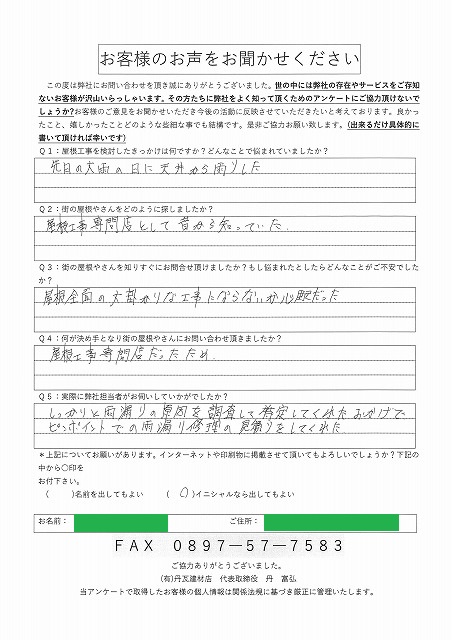 お客様のお声をお聞かせください
この度は弊社にお問い合わせを頂き誠にありがとうございました。世の中には弊社の存在やサービスをご存知
ないお客様が沢山いらっしゃいます。その方たちに弊社をよく知って頂くためのアンケートにご協力頂けないで
しょうか?お客様のご意見をお聞かせいただき今後の活動に反映させていただきたいと考えております。良かっ
たこと、嬉しかったことどのような些細な事でも結構です。是非ご協力お願い致します。(出来るだけ具体的に
書いて頂ければ幸いです)
Q1:屋根工事を検討したきっかけは何ですか?どんなことで悩まれていましたか?
先日の大雨の日に天井から雨もりした
Q2:街の屋根やさんをどのように探しましたか?
屋根工事専門店として昔から知っていた.
Q3:街の屋根やさんを知りすぐにお問合せ頂けましたか?もし悩まれたとしたらどんなことがご不安でした
か?
屋根全面の大掛かりな工事にならないか心配だった
Q4:何が決め手となり街の屋根やさんにお問い合わせ頂きましたか?
屋根工事専門店だったため.
Q5:実際に弊社担当者がお伺いしていかがでしたか?
しっかりと雨漏りの原因を調査して特定してくれたおかげで
ピンポイントでの雨漏り修理の見積りをしてくれた
*上記についてお願いがあります。インターネットや印刷物に掲載させて頂いてもよろしいでしょうか?下記の
中から〇印を
お付下さい。
( )名前を出してもよい ( 〇 )イニシャルなら出してもよい
お名前: ご住所:
FAX 0897-57-7583
ご協力ありがとうございました。
(有)丹瓦建材店 代表取締役 丹 富弘
当アンケートで取得したお客様の個人情報は関係法規に基づき厳正に管理いたします。